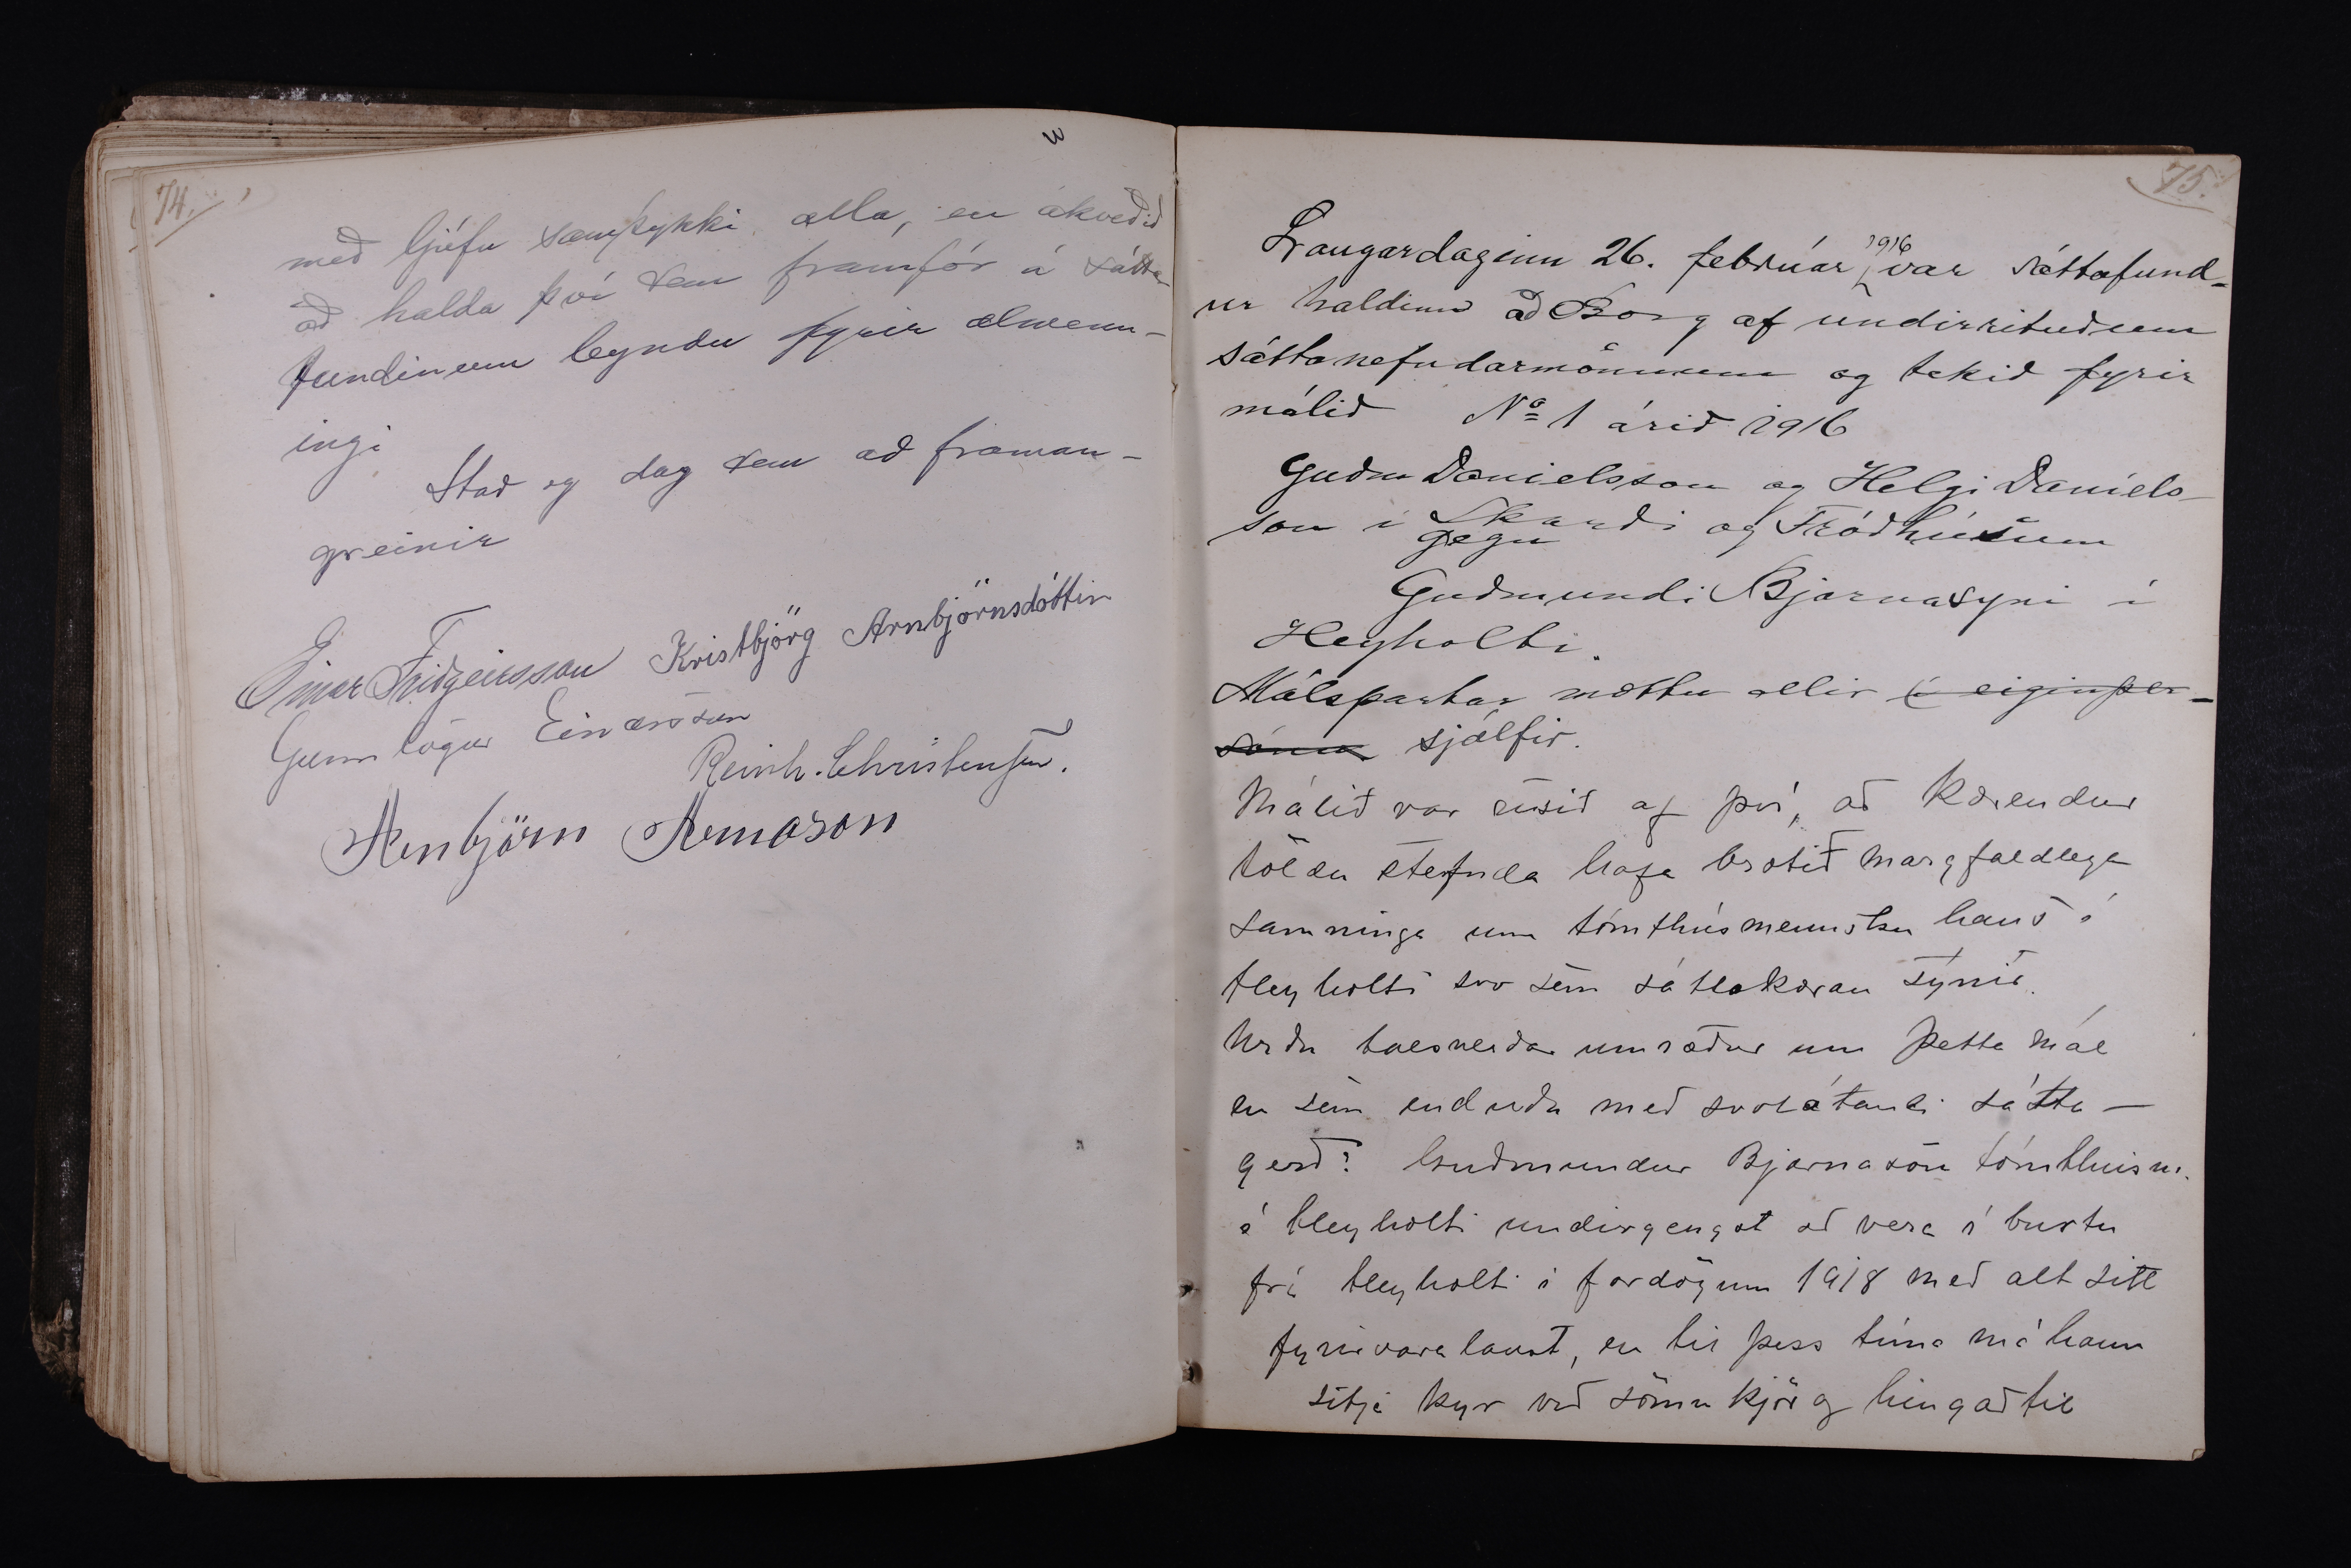 74.
með ljúfu samþykki alla, en ákveðið
að halda því sem framfór á sátta-
fundinum leyndu fyrir almenn-
ingi
Stað og dag sem að framan-
greinir
Einar Friðgeirsson Kristbjörg Arnbjörnsdóttir
Gunnlögur Einarsson
Reinh. Christensen.
Arnbjörn Arnason
75.
Laugardaginn 26. februar 1916 var sáttafund-
ur haldinn að Borg af undirrituðum
sáttanefndarmönnum og tekið fyrir
málið Nº 1 árið 1916
Guðm Danielsson og Helgi Daniels-
son í Skarði og Tröðhúsum
gegn
Guðmundi Bjarnasyni í
Heyholti.
Málspartar mættu allir í eigin per-
sónu sjálfir.
Málið var risið af því, að kærendur
töldu stefnda hafa brotið margfaldlega
samninga um tómthúsmennsku hans í
Heyholti svo sem sáttakæran sýnir.
Urðu talsverðar umræður um þetta mál
en sem enduðu með svolátandi sátta-
gerð: Guðmundur Bjarnason tómthúsm.
í Heyholti undirgengst að vera í burtu
frá Heyholti í fardögum 1918 með alt sitt
fyrirvaralaust, en til þess tíma má hann
sitja kyr við sömu kjör og hingað til